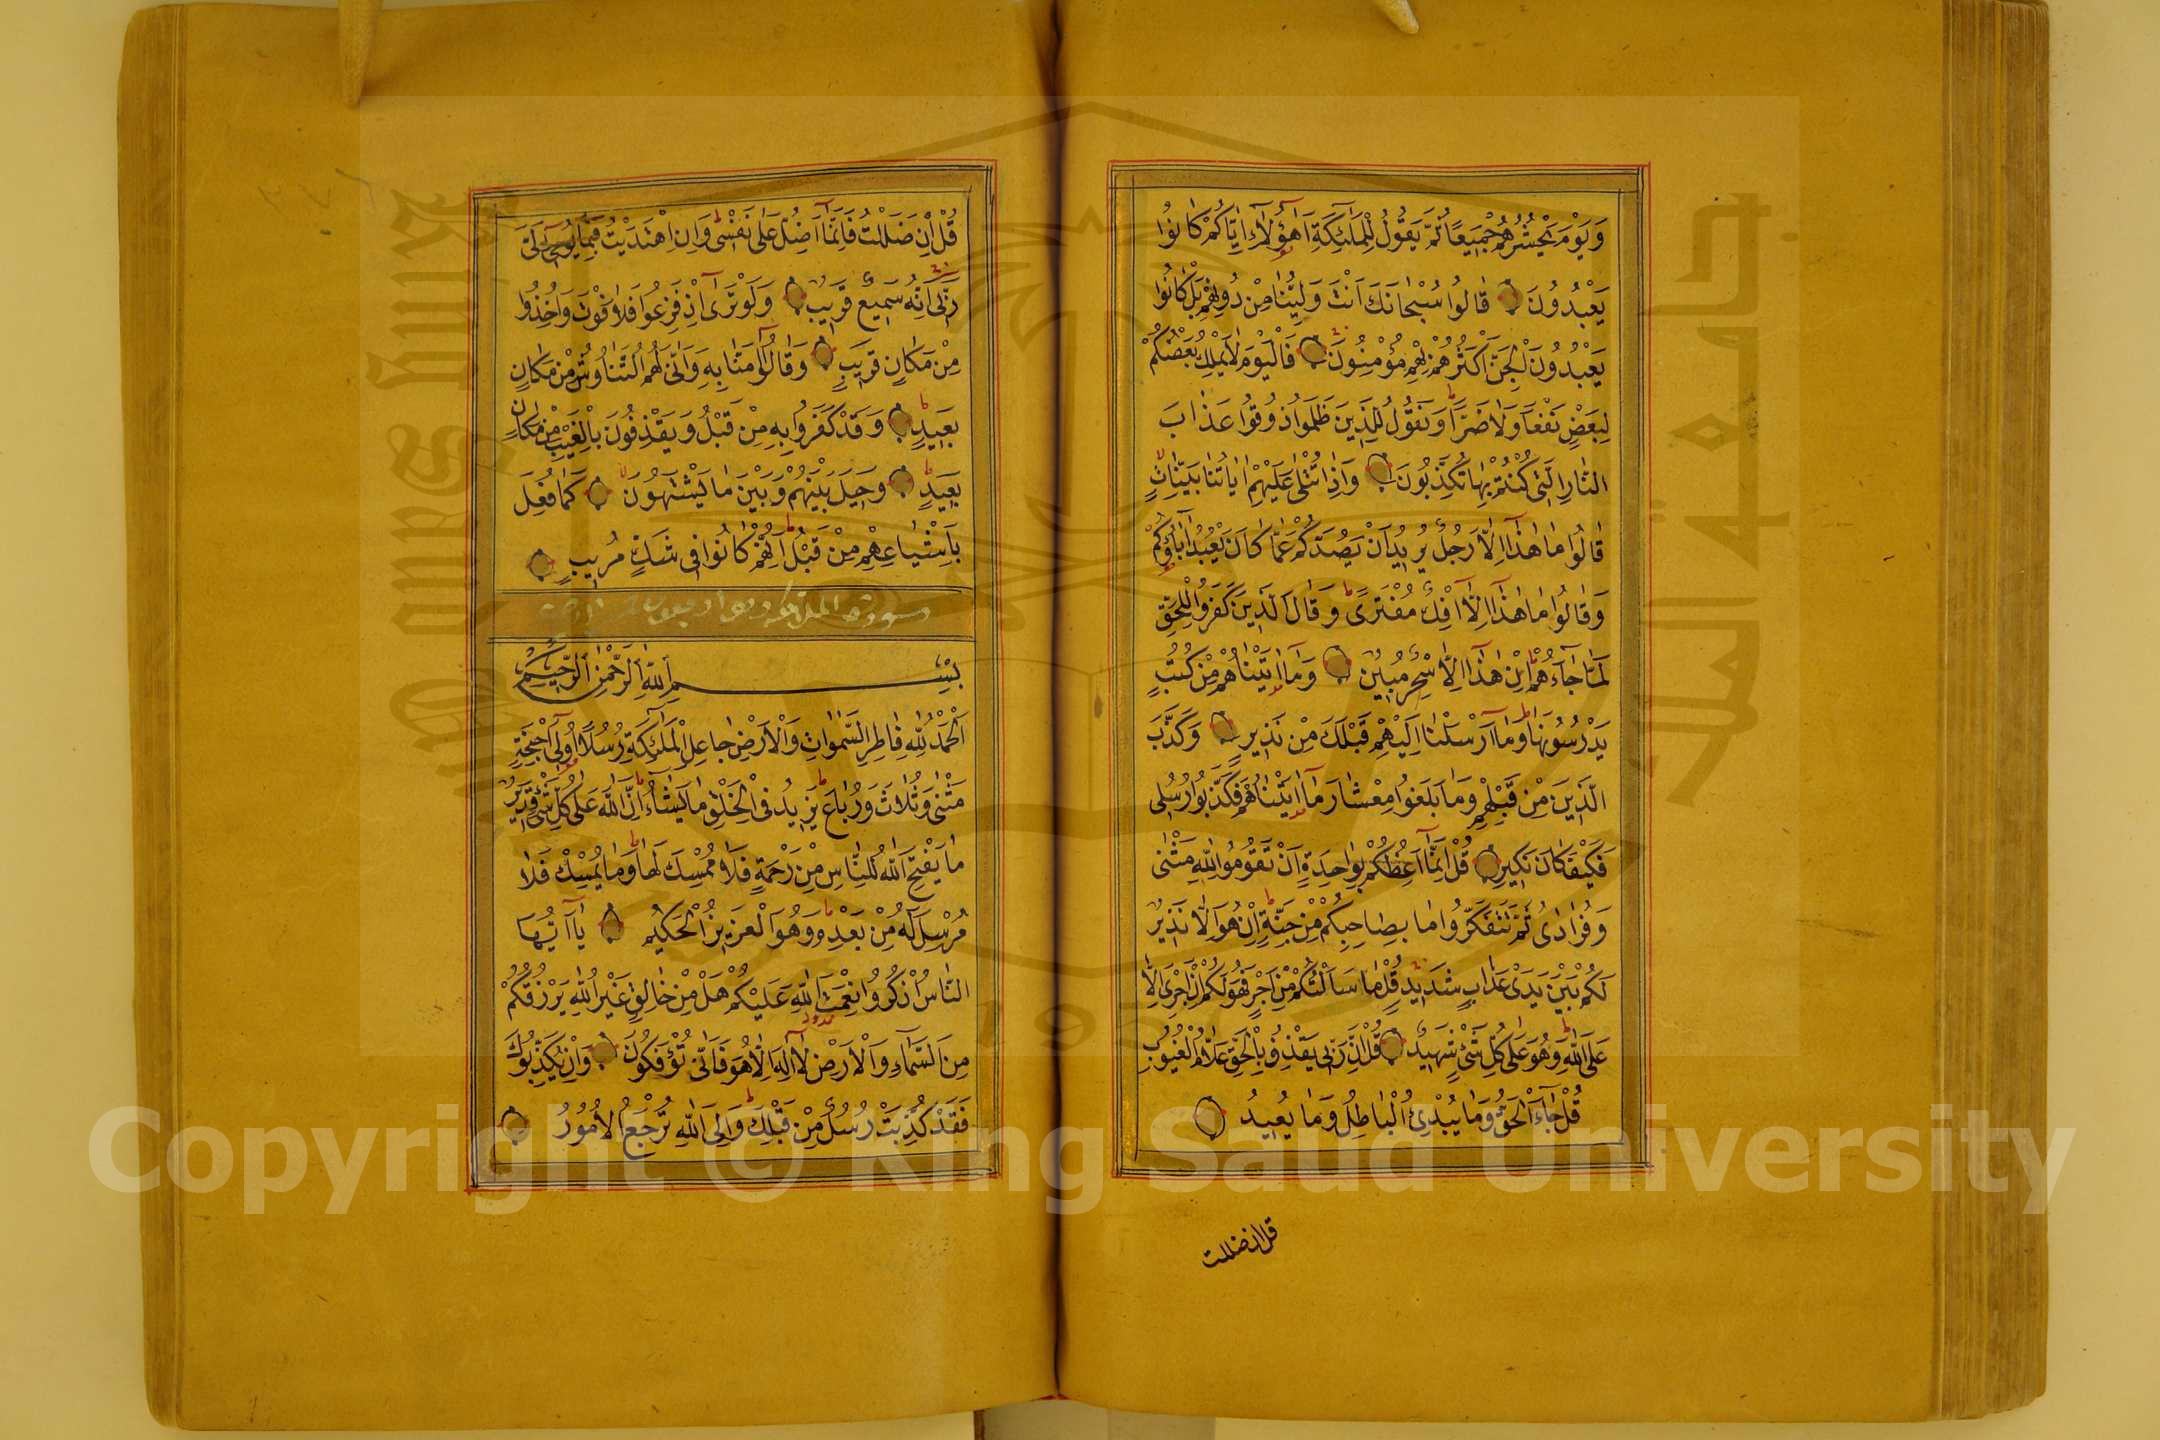 وَيَوْمَ يَحْشُرُهُمْ جَمِيعًا ثُمَّ يَقُولُ لِلْمَلٰئِكَةِ اَهٰؤُلَاءِ اِيَّاكُمْ كَانُوا
يَعْبُدُونَ قَالُوا سُبْحَانَكَ اَنْتَ وَلِيُّنَا مِنْ دُونِهِمْ بَلْ كَانُوا
يَعْبُدُونَ الْجِنَّ اَكْثَرُهُمْ بِهِمْ مُؤْمِنُونَ فَالْيَوْمَ لَا يَمْلِكُ بَعْضُكُمْ
لِبَعْضٍ نَفْعًا وَلَا ضَرًّا وَنَقُولُ لِلَّذِينَ ظَلَمُوا ذُوقُوا عَذَابَ
النَّارِ الَّتِي كُنْتُمْ بِهَا تُكَذِّبُونَ وَاِذَا تُتْلٰى عَلَيْهِمْ اٰيَاتُنَا بَيِّنَاتٍ
قَالُوا مَا هٰذَا اِلَّا رَجُلٌ يُرِيدُ اَنْ يَصُدَّكُمْ عَمَّا كَانَ يَعْبُدُ اٰبَاؤُكُمْ
وَقَالُوا مَا هٰذَا اِلَّا اِفْكٌ مُفْتَرًى وَقَالَ الَّذِينَ كَفَرُوا لِلْحَقِّ
لَمَّا جَاءَهُمْ اِنْ هٰذَا اِلَّا سِحْرٌ مُبِينٌ وَمَا اٰتَيْنَاهُمْ مِنْ كُتُبٍ
يَدْرُسُونَهَا وَمَا اَرْسَلْنَا اِلَيْهِمْ قَبْلَكَ مِنْ نَذِيرٍ وَكَذَّبَ
الَّذِينَ مِنْ قَبْلِهِمْ وَمَا بَلَغُوا مِعْشَارَ مَا اٰتَيْنَاهُمْ فَكَذَّبُوا رُسُلِي
فَكَيْفَ كَانَ نَكِيرِ قُلْ اِنَّمَا اَعِظُكُمْ بِوَاحِدَةٍ اَنْ تَقُومُوا لِلّٰهِ مَثْنٰى
وَفُرَادٰى ثُمَّ تَتَفَكَّرُوا مَا بِصَاحِبِكُمْ مِنْ جِنَّةٍ اِنْ هُوَ اِلَّا نَذِيرٌ
لَكُمْ بَيْنَ يَدَيْ عَذَابٍ شَدِيدٍ قُلْ مَا سَاَلْتُكُمْ مِنْ اَجْرٍ فَهُوَ لَكُمْ اِنْ اَجْرِيَ اِلَّا
عَلَى اللّٰهِ وَهُوَ عَلٰى كُلِّ شَيْءٍ شَهِيدٌ قُلْ اِنَّ رَبِّي يَقْذِفُ بِالْحَقِّ عَلَّامُ الْغُيُوبِ
قُلْ جَاءَ الْحَقُّ وَمَا يُبْدِئُ الْبَاطِلُ وَمَا يُعِيدُ
قل ان ضللت
قُلْ اِنْ ضَلَلْتُ فَاِنَّمَا اَضِلُّ عَلٰى نَفْسِي وَاِنِ اهْتَدَيْتُ فَبِمَا يُوحِي اِلَيَّ
رَبِّي اِنَّهُ سَمِيعٌ قَرِيبٌ وَلَوْ تَرٰى اِذْ فَزِعُوا فَلَا فَوْتَ وَاُخِذُوا
مِنْ مَكَانٍ قَرِيبٍ وَقَالُوا اٰمَنَّا بِهِ وَاَنّٰى لَهُمُ التَّنَاوُشُ مِنْ مَكَانٍ
بَعِيدٍ وَقَدْ كَفَرُوا بِهِ مِنْ قَبْلُ وَيَقْذِفُونَ بِالْغَيْبِ مِنْ مَكَانٍ
بَعِيدٍ وَحِيلَ بَيْنَهُمْ وَبَيْنَ مَا يَشْتَهُونَ كَمَا فُعِلَ
بِاَشْيَاعِهِمْ مِنْ قَبْلُ اِنَّهُمْ كَانُوا فِي شَكٍّ مُرِيبٍ
سورة الملائكة
بِسْمِ اللّٰهِ الرَّحْمٰنِ الرَّحِيمِ
اَلْحَمْدُ لِلّٰهِ فَاطِرِ السَّمٰوَاتِ وَالْاَرْضِ جَاعِلِ الْمَلٰئِكَةِ رُسُلًا اُولِي اَجْنِحَةٍ
مَثْنٰى وَثُلَاثَ وَرُبَاعَ يَزِيدُ فِي الْخَلْقِ مَا يَشَاءُ اِنَّ اللّٰهَ عَلٰى كُلِّ شَيْءٍ قَدِيرٌ
مَا يَفْتَحِ اللّٰهُ لِلنَّاسِ مِنْ رَحْمَةٍ فَلَا مُمْسِكَ لَهَا وَمَا يُمْسِكْ فَلَا
مُرْسِلَ لَهُ مِنْ بَعْدِهِ وَهُوَ الْعَزِيزُ الْحَكِيمُ يَا اَيُّهَا
النَّاسُ اذْكُرُوا نِعْمَتَ اللّٰهِ عَلَيْكُمْ هَلْ مِنْ خَالِقٍ غَيْرُ اللّٰهِ يَرْزُقُكُمْ
مِنَ السَّمَاءِ وَالْاَرْضِ لَا اِلٰهَ اِلَّا هُوَ فَاَنّٰى تُؤْفَكُونَ وَاِنْ يُكَذِّبُوكَ
فَقَدْ كُذِّبَتْ رُسُلٌ مِنْ قَبْلِكَ وَاِلَى اللّٰهِ تُرْجَعُ الْاُمُورُ
Copyright © King Saud University
King Saud University
جامعة الملك سعود
1957